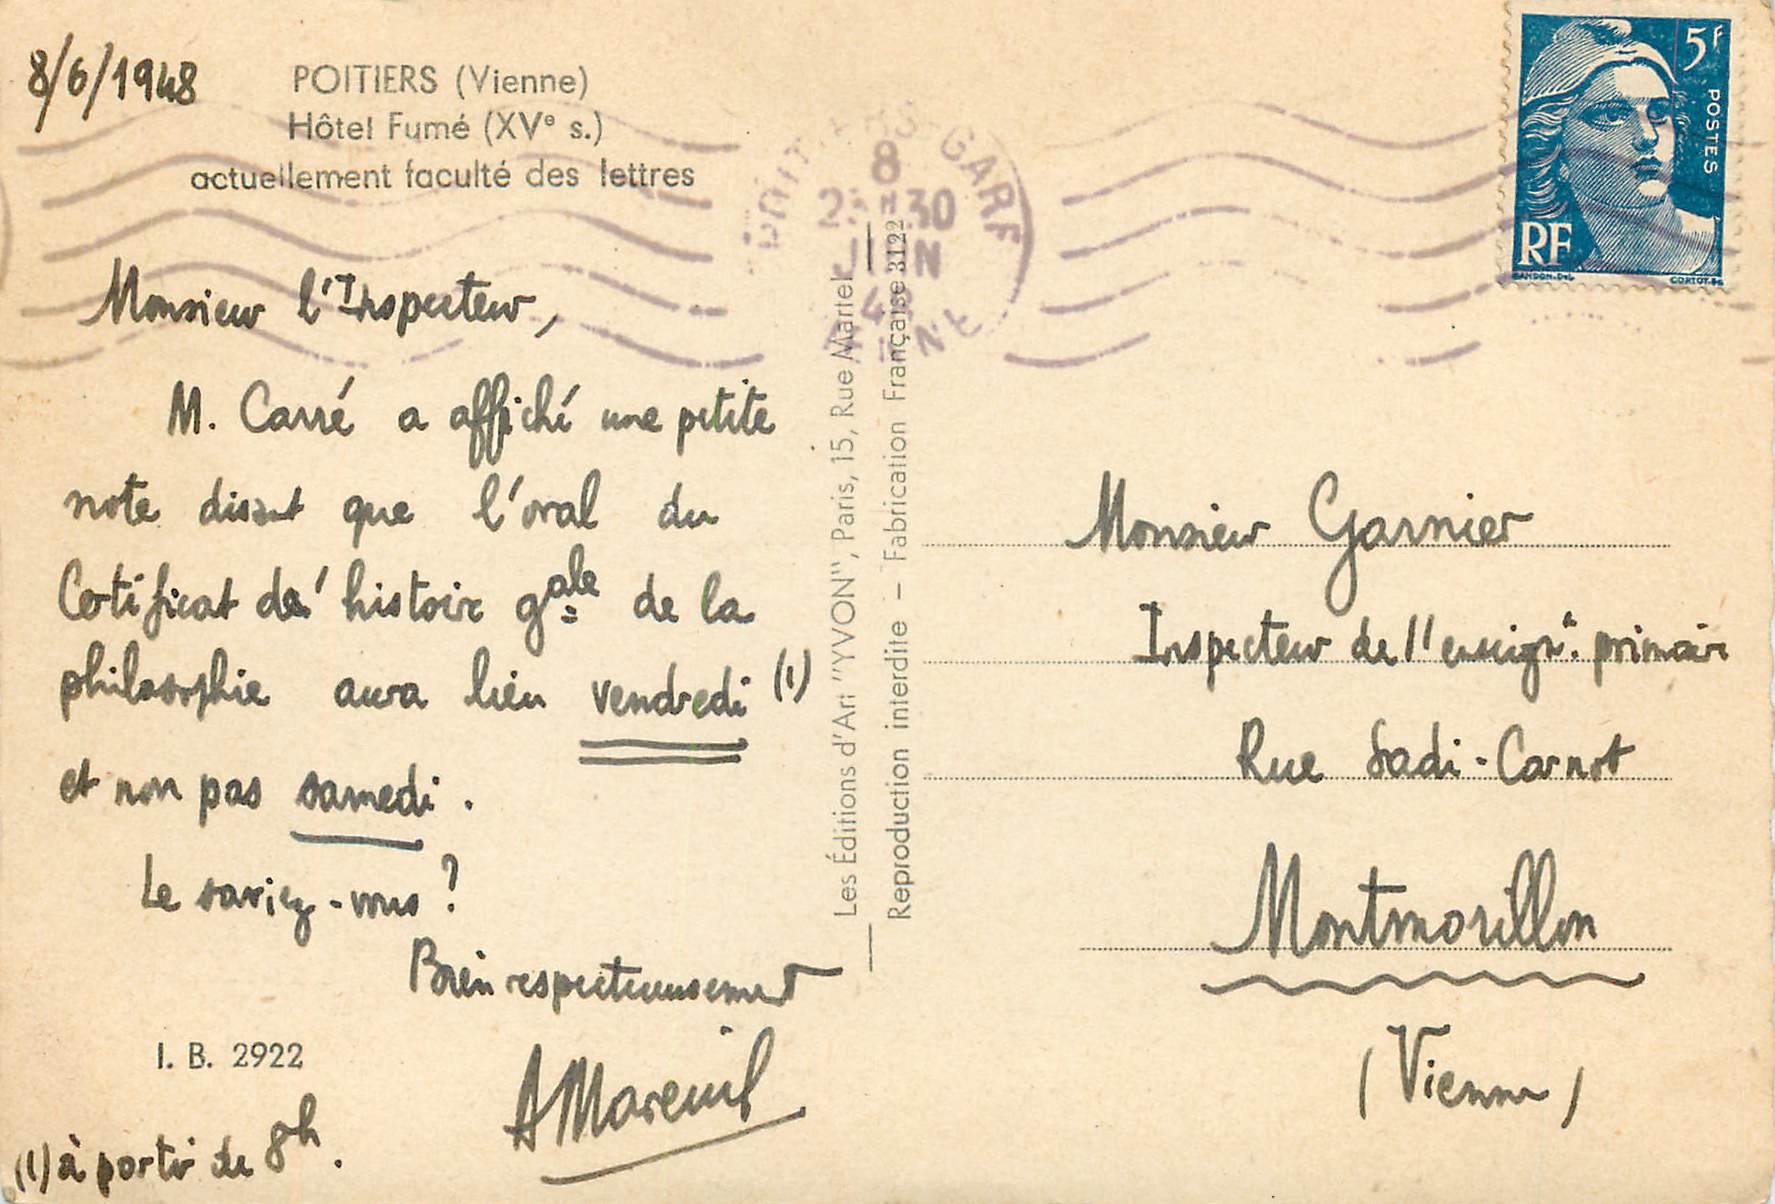 8/6/1948
POITIERS (Vienne)
Hôtel Fumé (XVe s.)
actuellement faculté des lettres
Monsieur l'Inspecteur,
M. Carré a affiché une petite
note disant que l'oral du
Certificat de l'histoire gale de la
philosophie aura lieu vendredi (1)
et non pas samedi.
Le saviez-vous ?
Bien respectueusement
AMareuil
I. B. 2922
(1) à partir de 8h.
Les Éditions d'Art "YVON", Paris, 15, Rue Martel
Reproduction interdite – Fabrication Française 3122
8
30
JUIN
48
5F
POSTES
RF
GANDON-DEL
CORTOT-SC
Monsieur Garnier
Inspecteur de l'enseignt. primaire
Rue Sadi-Carnot
Montmorillon
(Vienne)